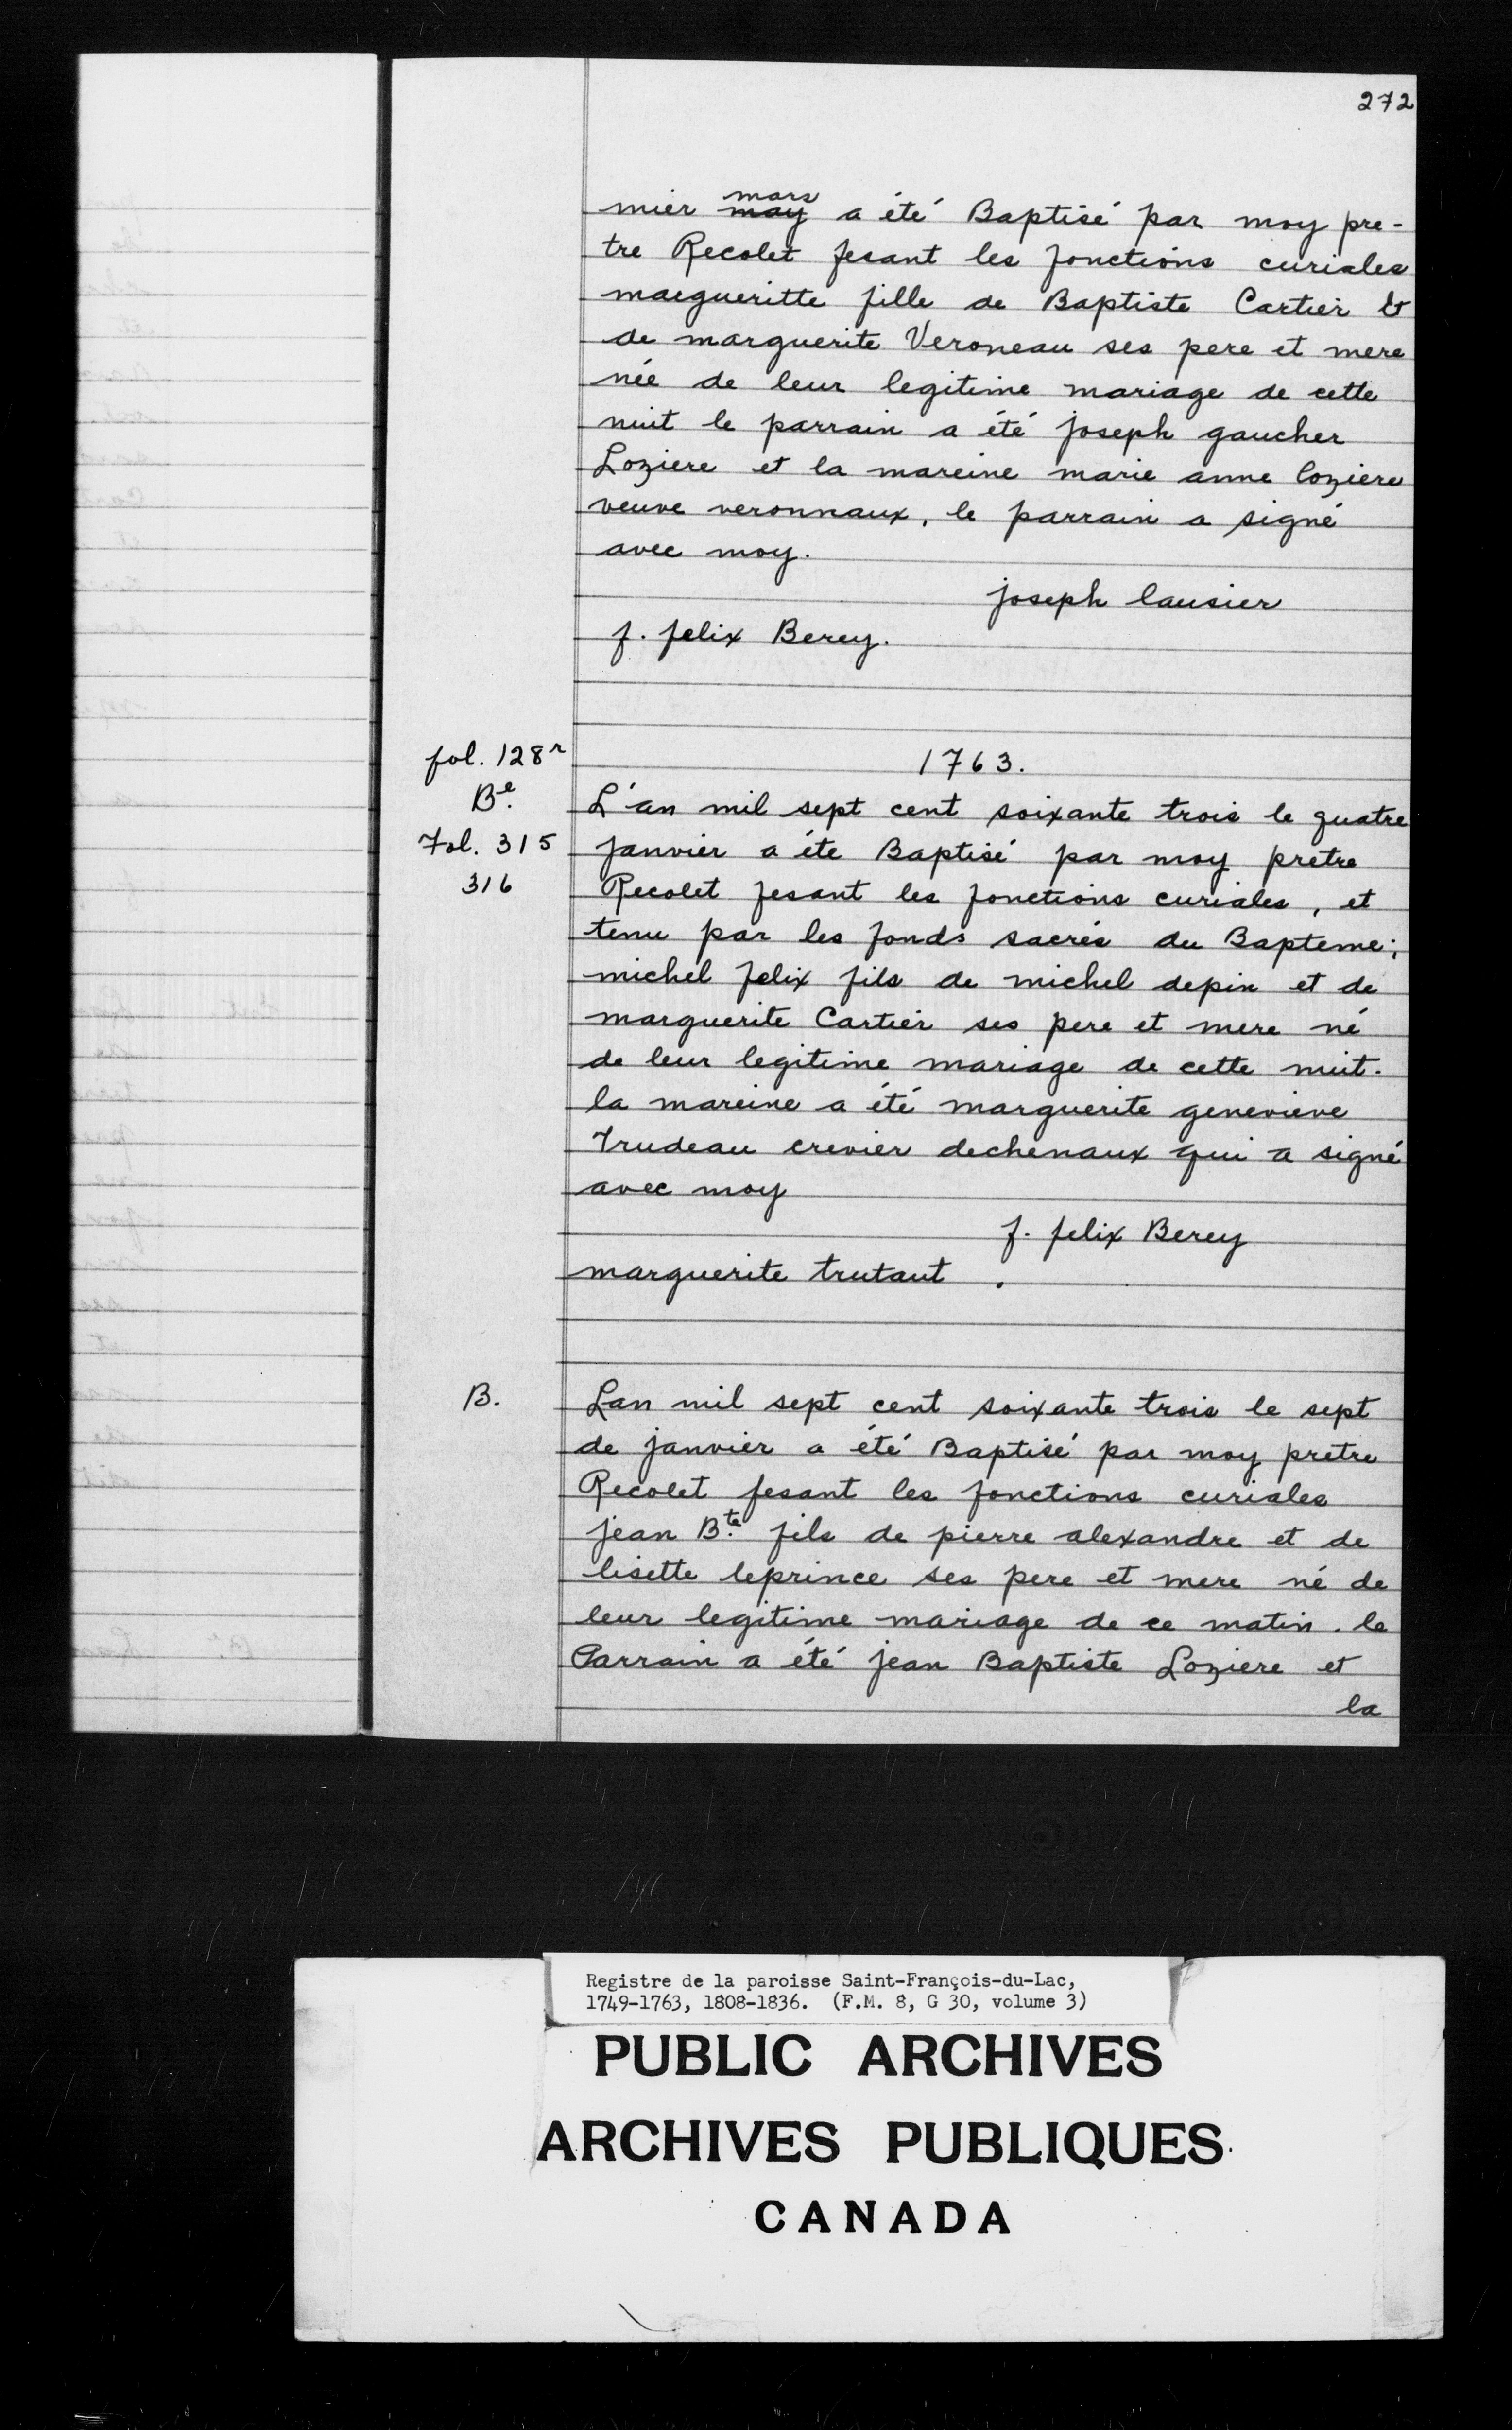 272
mier may mars a été Baptisé par moy pre-
tre Recolet fesant les fonctions curiales
margueritte fille de Baptiste Cartier &
de marguerite Veroneau ses pere et mere
née de leur legitime mariage de cette
nuit le parrain a été joseph gaucher
Loziere et la mareine marie anne loziere
veuve veronnaux, le parrain a signé
avec moy.
joseph lausier
f. felix Berey.
fol. 128r
1763.
Be.
L'an mil sept cent soixante trois le quatre
Fol. 315
janvier a éte Baptisé par moy pretre
316
Recolet fesant les fonctions curiales, et
tenu par les fonds sacrés du Bapteme;
michel felix fils de michel depin et de
marguerite Cartier ses pere et mere né
de leur legitime mariage de cette nuit.
la mareine a été marguerite genevieve
Trudeau crevier dechenaux qui a signé
avec moy
f. felix Berey
marguerite trutaut .
B.
Lan mil sept cent soixante trois le sept
de janvier a été Baptisé par moy pretre
Recolet fesant les fonctions curiales
jean Bte. fils de pierre alexandre et de
lisette leprince ses pere et mere né de
leur legitime mariage de ce matin. le
Parrain a été jean Baptiste Loziere et
la
Registre de la paroisse Saint-François-du-Lac,
1749-1763, 1808-1836. (F.M. 8, G 30, volume 3)
PUBLIC ARCHIVES
ARCHIVES PUBLIQUES
CANADA